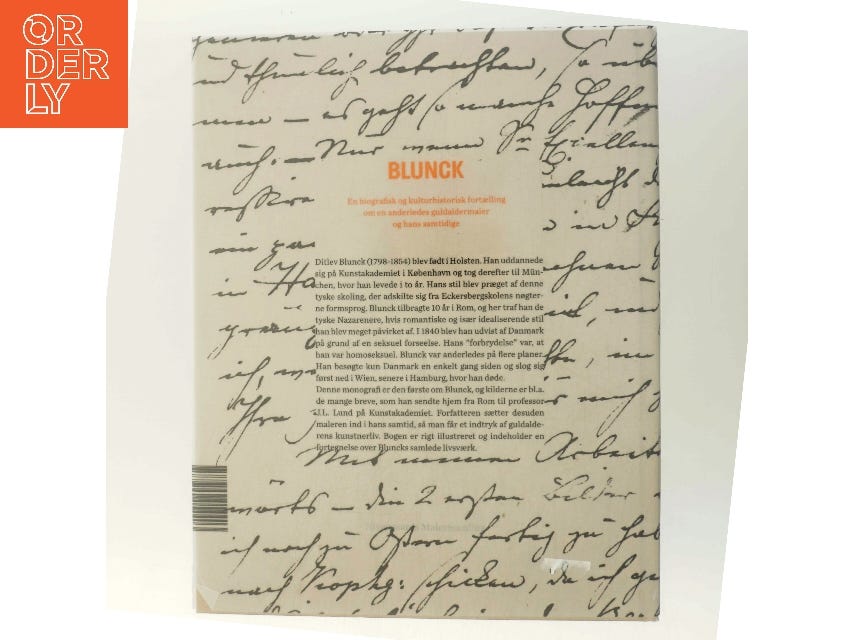 OR
DER
LY
BLUNCK
En biografisk og kulturhistorisk fortælling
om en anderledes guldaldermaler
og hans samtidige
Ditlev Blunck (1798-1854) blev født i Holsten. Han uddannede
sig på Kunstakademiet i København og tog derefter til Mün-
chen, hvor han levede i to år. Hans stil blev præget af denne
tyske skoling, der adskilte sig fra Eckersbergskolens nøgter-
ne formsprog. Blunck tilbragte 10 år i Rom, og her traf han de
tyske Nazarenere, hvis romantiske og især idealiserende stil
han blev meget påvirket af. I 1840 blev han udvist af Danmark
på grund af en seksuel forseelse. Hans "forbrydelse" var, at
han var homoseksuel. Blunck var anderledes på flere planer.
Han besøgte kun Danmark en enkelt gang siden og slog sig
først ned i Wien, senere i Hamburg, hvor han døde.
Denne monografi er den første om Blunck, og kilderne er bl.a.
de mange breve, som han sendte hjem fra Rom til professor
J.L. Lund på Kunstakademiet. Forfatteren sætter desuden
maleren ind i hans samtid, så man får et indtryk af guldalde-
rens kunstnerliv. Bogen er rigt illustreret og indeholder en
fortegnelse over Bluncks samlede livsværk.
und thunlich betrachten, so üb
men – es geht so manche Hoffn
auch. – Nur wenn Sr Exellen
in Ha
ich, 
Ihra
Mit meinen Arbeit
märts – die 2 ersten Bilder
ich noch zu Ostern fertig zu hab
nach Kophg: schicken, da ich ge